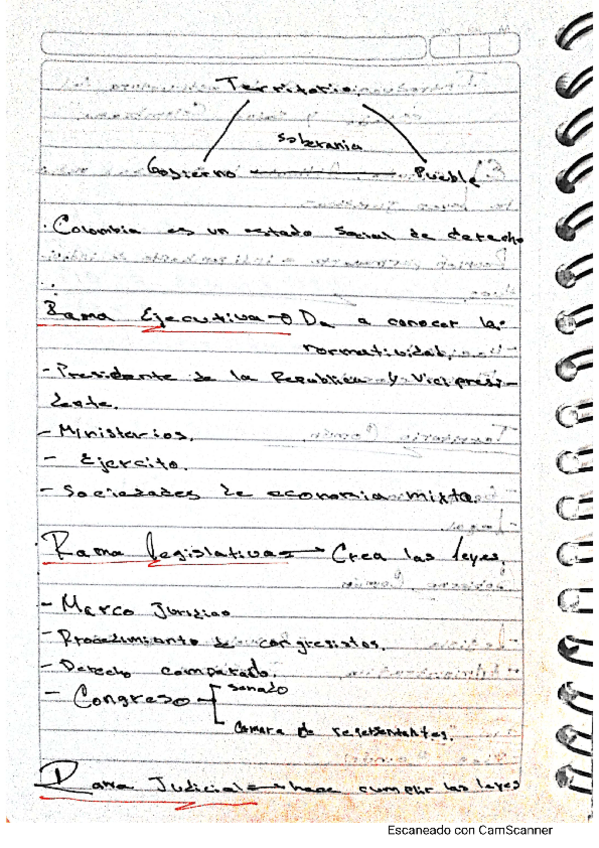 Territorio
Soberania
Gobierno Pueblo
Colombia es un estado Social de derecho
Rama Ejecutiva → Da a conocer la
normatividad.
- Presidente de la Republica y Vicepresi-
dente.
- Ministerios.
- Ejercito.
- Sociedades de economia mixta.
Rama legislativa → Crea las leyes.
- Marco Juridico
- Procedimiento de congresistas.
- Derecho comparado.
- Congreso
Senado
Camara de representantes.
Rama Judicial → hace cumplir las leyes
Escaneado con CamScanner